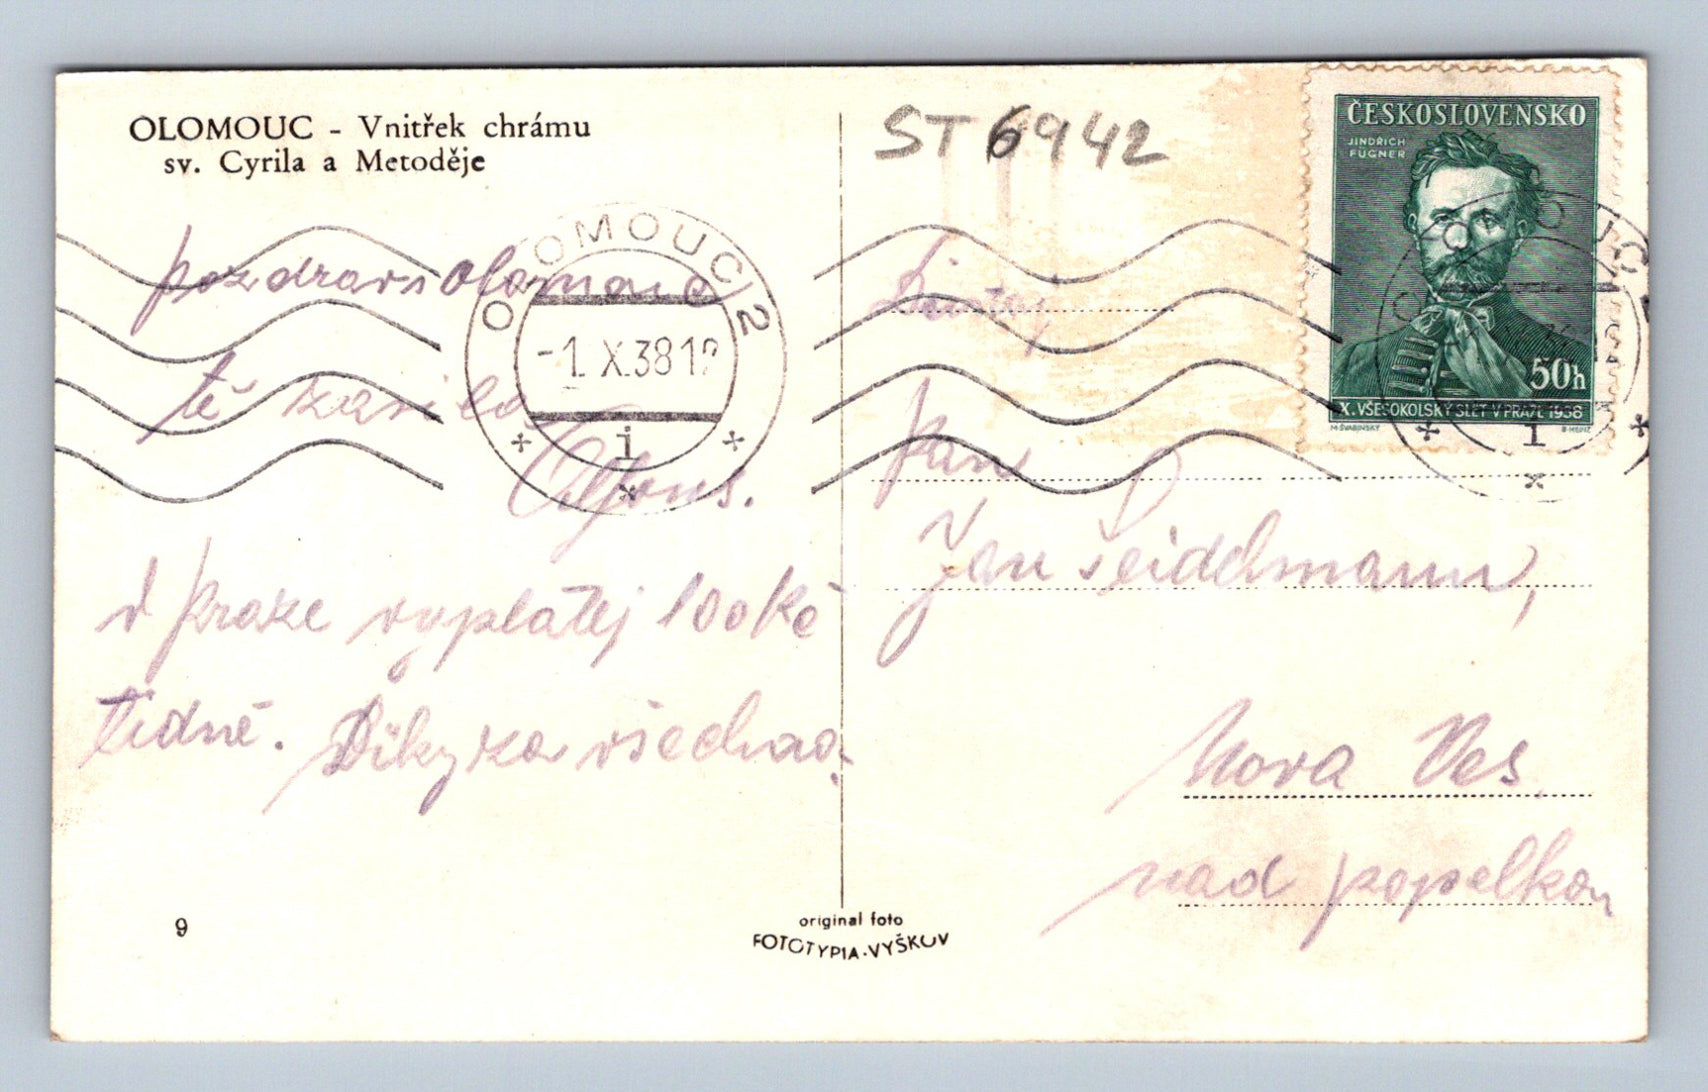 OLOMOUC - Vnitřek chrámu
sv. Cyrila a Metoděje
ST 6942
ČESKOSLOVENSKO
JINDŘICH
FÜGNER
50h
X. VŠESOKOLSKÝ SLET V PRAZE 1938
M. ŠVABINSKÝ
B. HEINZ
OLOMOUC 2
-1. X. 38 12
i
pozdrav Olomouc
tě zasílá
Alfons.
V Praze vyplatěj 100 Kč
tidně. Díky za všechno.
Pan
Jan Seidelmann,
Nova Ves
nad popelkou
9
original foto
FOTOTYPIA-VYŠKOV